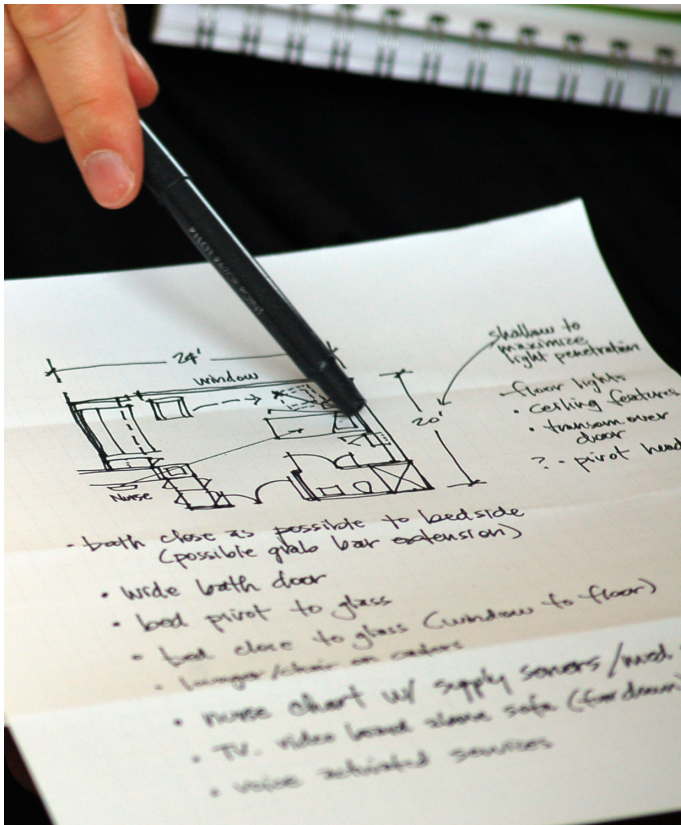 24'
window
20'
Nurse
shallow to
maximize
light penetration
- floor lights
• ceiling features
• transom over
door
? • pivot head
- bath close as possible to bedside
(possible grab bar extension)
• wide bath door
• bed pivot to glass
• bed close to glass (window to floor)
• lounger/chair on casters
• nurse chart w/ supply servers/med.
• TV. video board above sofa (for
• voice activated services